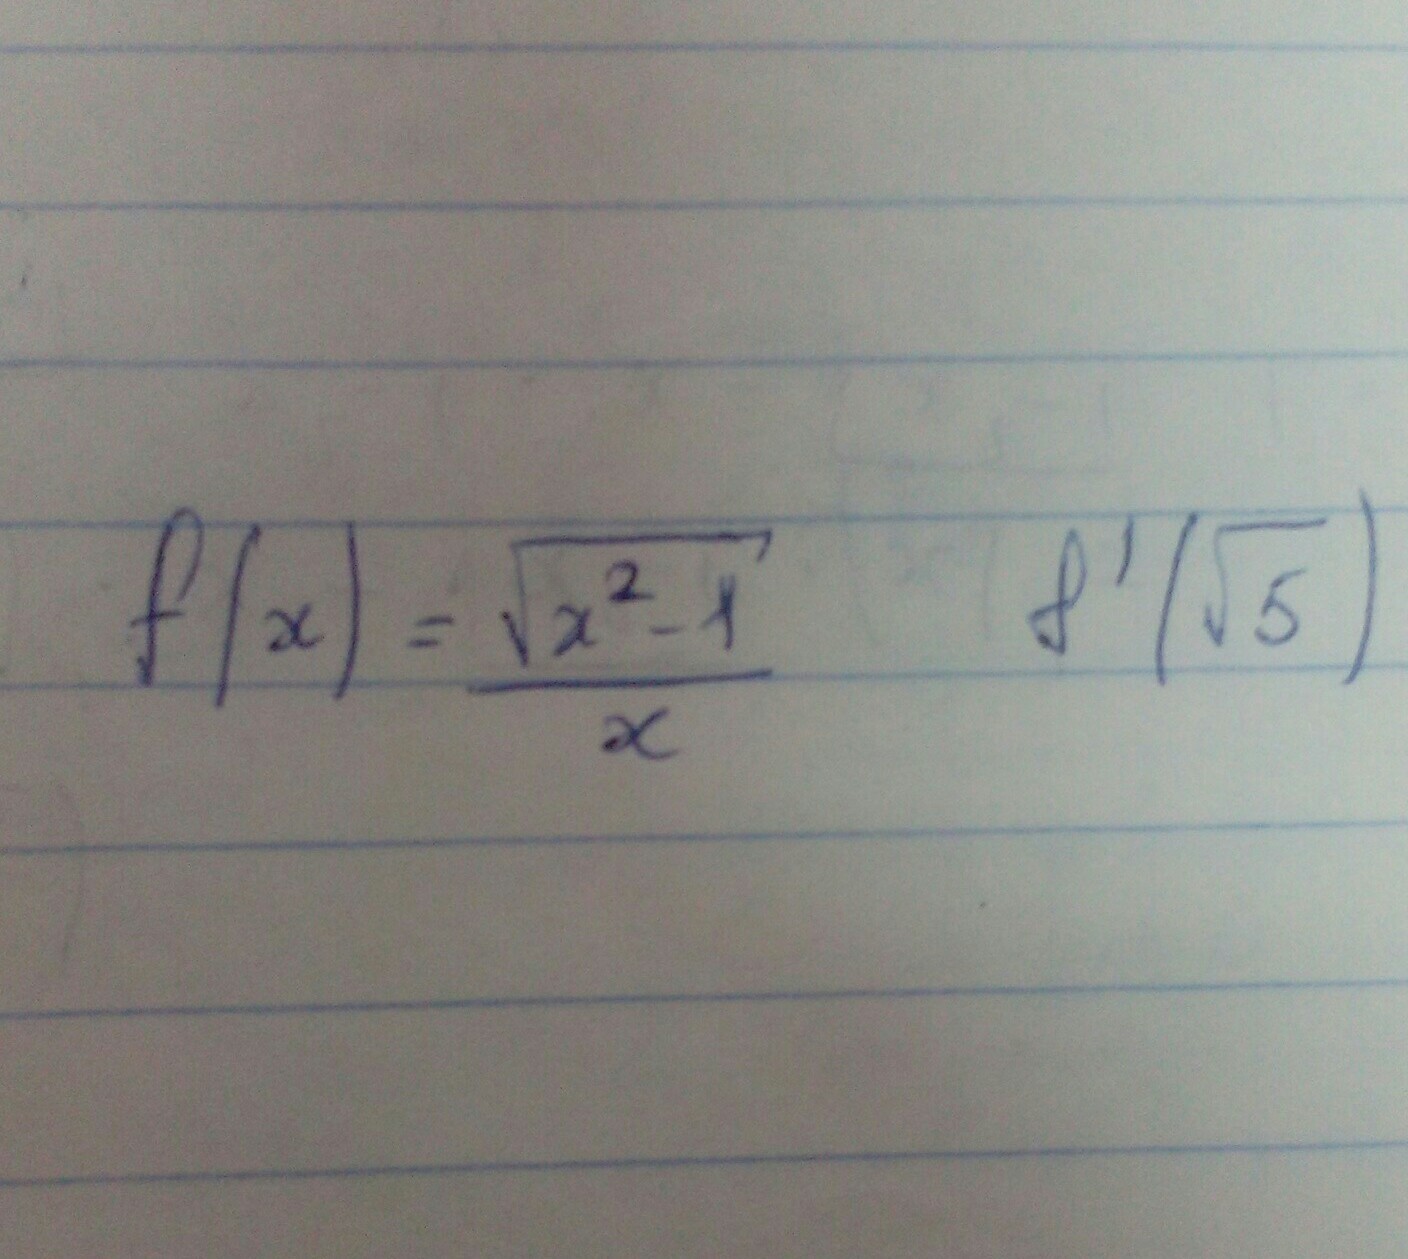 f(x) = √(x² - 1) / x    f'(√5)